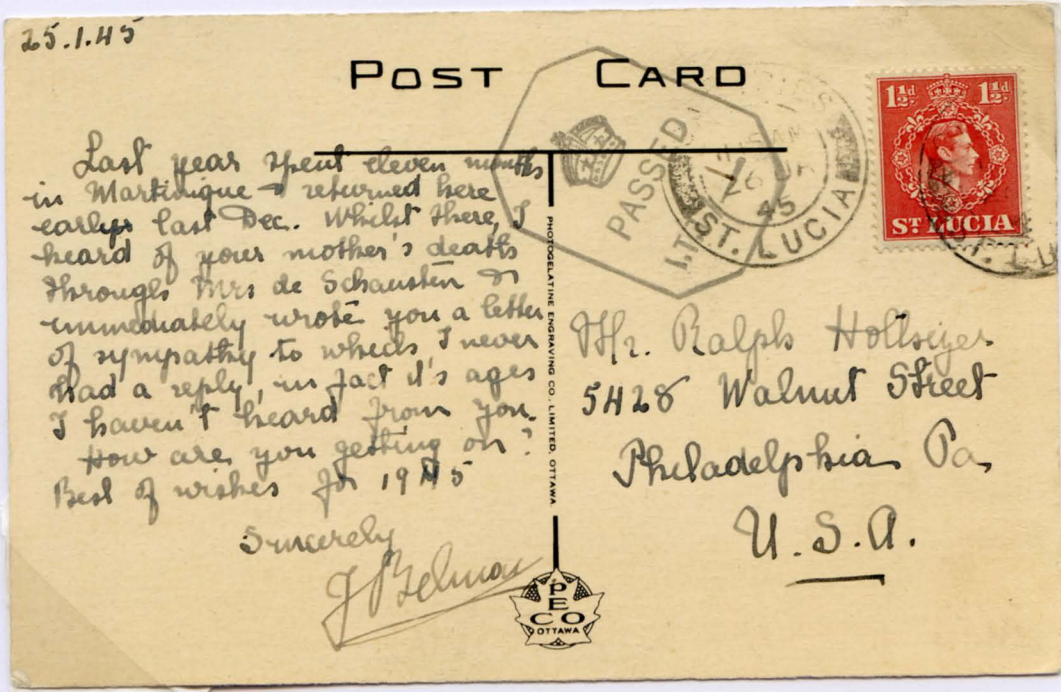 25.1.45
POST CARD
Last year spent eleven months
in Martinique & returned here
early last Dec. Whilst there, I
heard of your mother's death
through Mrs de Schausten &
immediately wrote you a letter
of sympathy to which, I never
had a reply, in fact it's ages
I haven't heard from you.
How are you getting on?
Best of wishes for 1945
Sincerely
J Belmar
PHOTOGELATINE ENGRAVING CO. LIMITED, OTTAWA
PECO
OTTAWA
PASSED
I.T.
26 JA
45
ST. LUCIA
1½d. 1½d.
ST. LUCIA
Mr. Ralph
5428 Walnut Street
Philadelphia Pa
U.S.A.